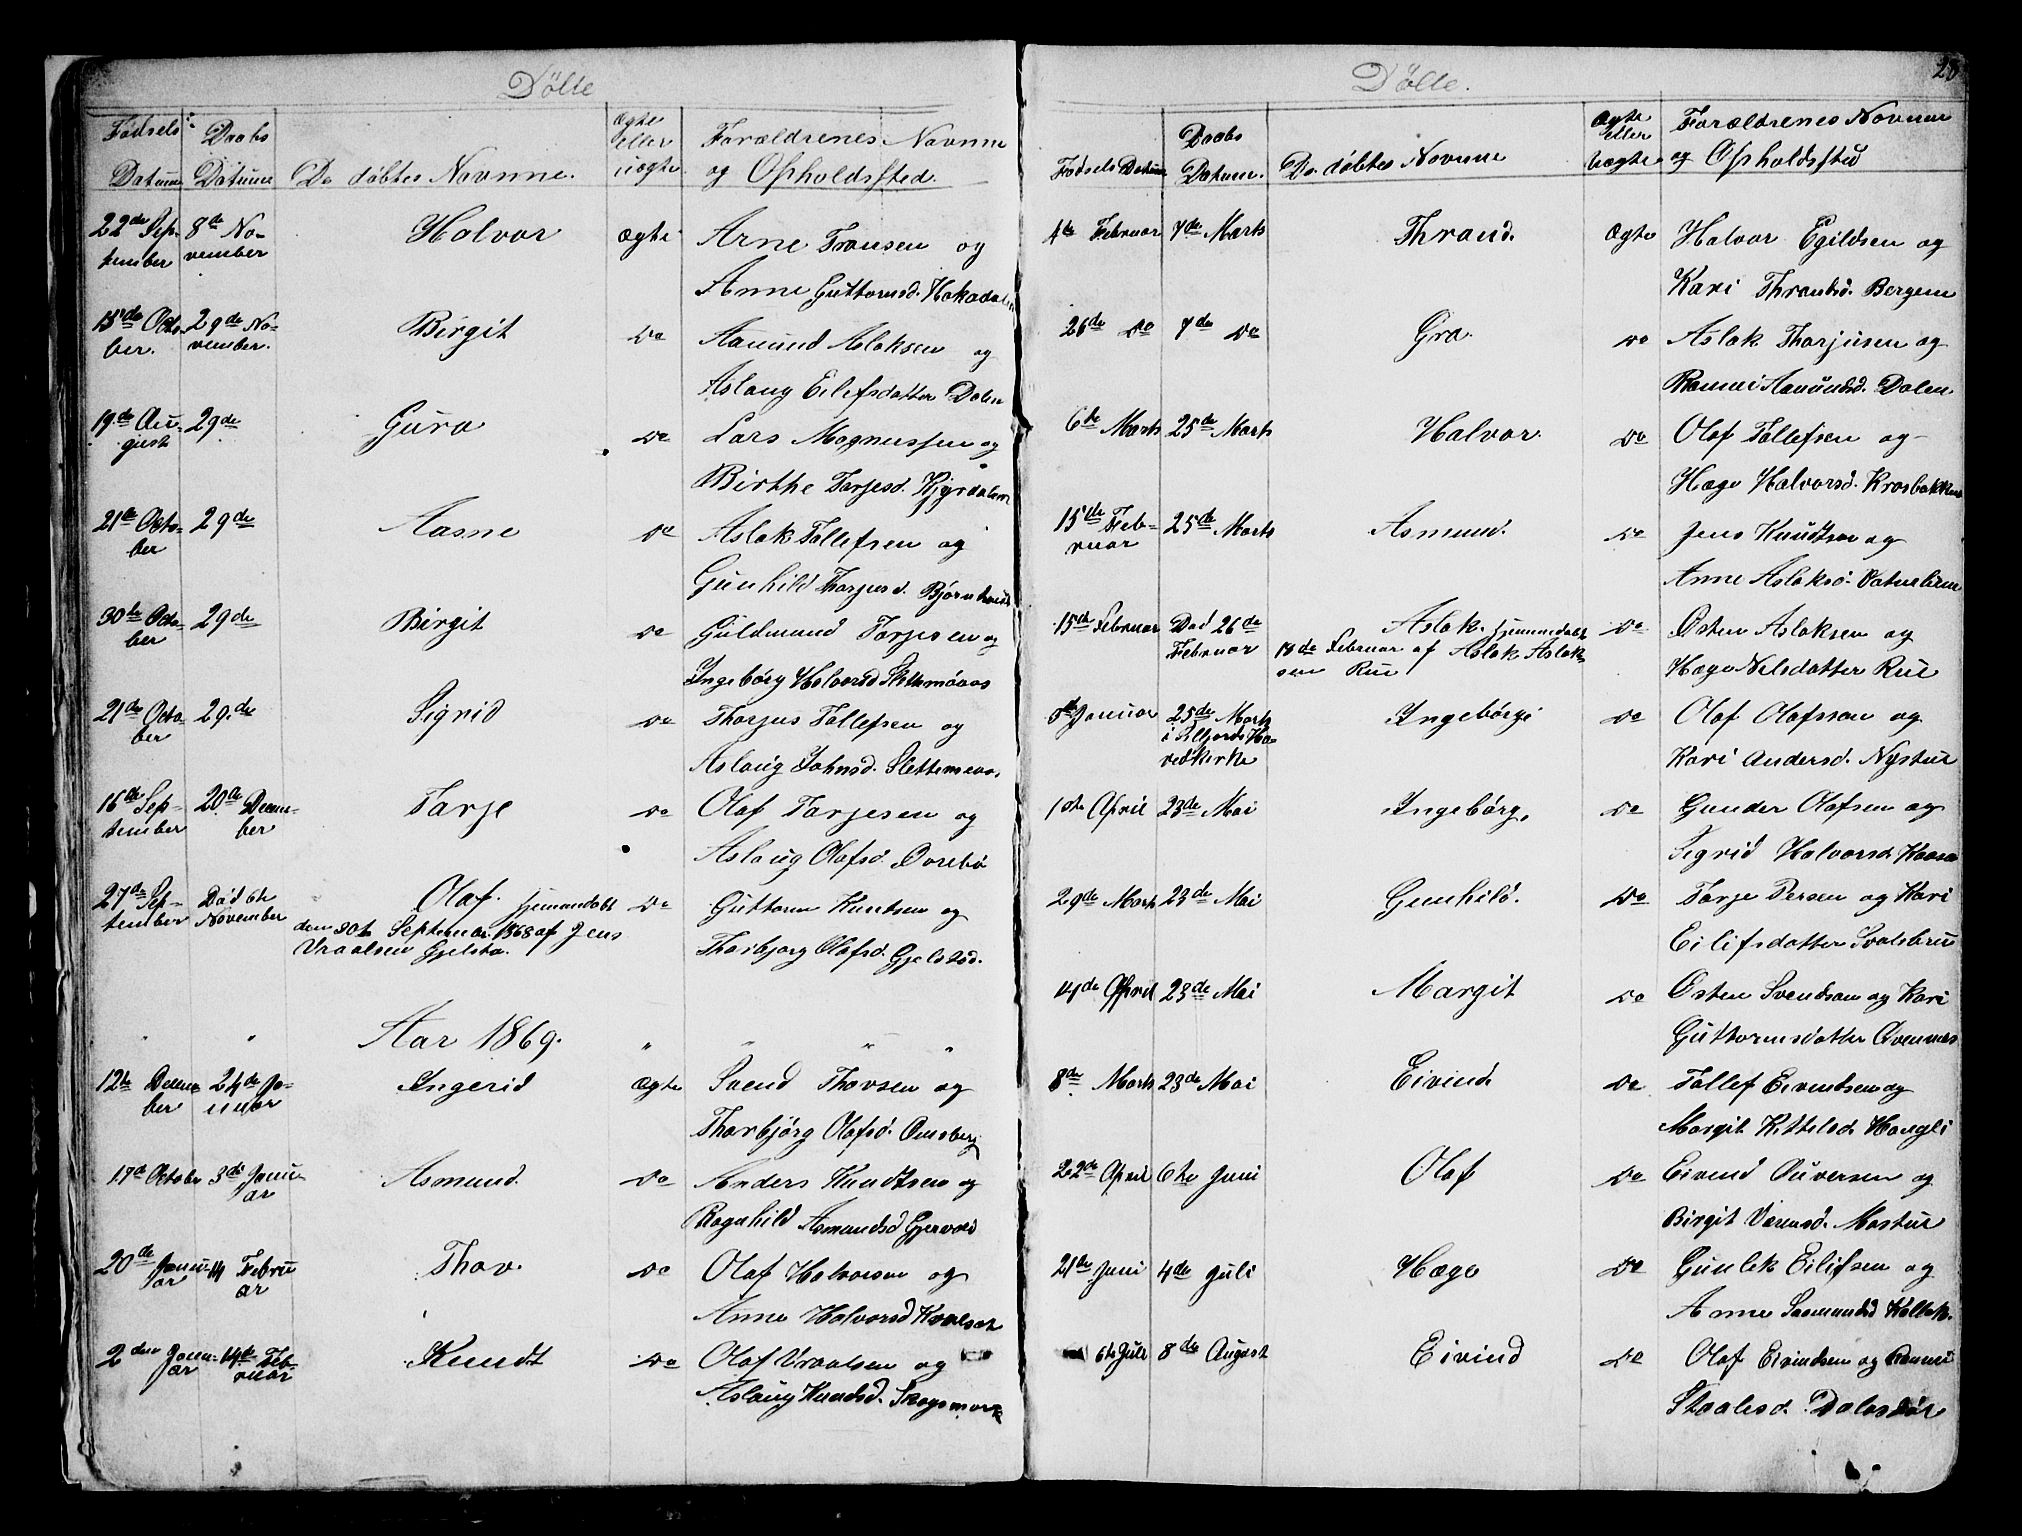 Döbte
Fødsels Datum
Daabs Datum
De døbtes Navnne.
Ægte eller uægte
Forældrenes Navnne og Opholdssted.
22de September 8de November Halvor Ægte Arne Transen og
Anne Guttormsd. Hakadalen
15de October. 29de November. Birgit do Aamund Aslaksen og
Aslaug Eilefsdatter Dalen
19de August 29de Guro do Lars Magnussen og
Birthe Tarjesd. Hjyrdalen
21de October 29de Aasne do Aslak Tollefsen og
Gunhild Thorjusd. Bjørntvedt
30te October 29de Birgit do Guldmund Tarjesen og
Ingebørg Halvorsd Slettemoaas
21de October 29de Sigrid do Thorjus Tollefsen og
Aslaug Johnsd. Slettemoaas
16de September 20de December Tarje do Olaf Tarjesen og
Aslaug Olafsd. Ovrebö
27de September Död 6te November Olaf. hjemmedøbt do Guttorm Knudsen og
den 30te September 1868 af Jens
Vraalsen Gjelsta. Thorbjorg Olafsd. Gjelstad.
" " Aar 1869. " " " "
12te December 24de Januar Ingerid Ægte Svend Thovsen og
Thorbjörg Olafsd. Omsberg
17de October 3de Januar Asmund. do Anders Knudtsen og
Ragnhild Asmundsd Gjervold
20de Januar 14 Februar Thov. do Olaf Halvorsen og
Anne Halvorsd
2den Januar 14de Februar Knudt do Olaf Vraalsen og
Aslaug Knudsd. Skogsmark
28
Dölte.
Fødsels Datum
Daabs Datum.
De døbtes Navnne
Ægte eller Uægte
Forældrenes Navnne og Opholdssted
4de Februar 7de Marts Thrond. Ægte Halvor Egildsen og
Kari Throndsd. Bergene
26de do 7de do Gro. do Aslak Thorjusen og
Rannei Aamundsd. Dalen
6te Marts 25de Marts Halvor. do Olaf Tollefsen og
Hæge Halvorsd. Krosbakken
15de Februar 25de Marts Asmund. do Jens Knudtsen og
Anne Aslaksd.
15de Februar Død 26de Februar Aslak. hjemmedøbt do Østen Aslaksen og
18de Februar af Aslak Aslaksen Rue Hæge Nilsdatter Rue
5te Januar 25de Marts i Silljords Hovedkirke Ingebørg do Olaf Olafsson og
Kari Andersd. Nystue
1ste April 23de Mai Ingebörg, do Gunder Olafsen og
Sigrid Halvorsd. Haasa
29de Marts 23de Mai Gunhild. do Tarje Persen og Kari
Eilifsdatter Svalsbru
14de April 23de Mai Margit do Østen Svendsen og Kari
Guttormsdatter Qvennaas
8de Marts 23de Mai Eivind do Tollef Eivindsen og
Margit Kittelsd. Haugli
22de April 6te Juni Olaf do Eivind Ouversen og
BirgitVærensd. Mastue
21de Juni 4de Juli Hæge do Gunlek Eilifsen og
Anne Saamundsd
6te Juli 8de August Eivind do Olaf Eivindsen og Rannei
Staalesd. Dalsdör